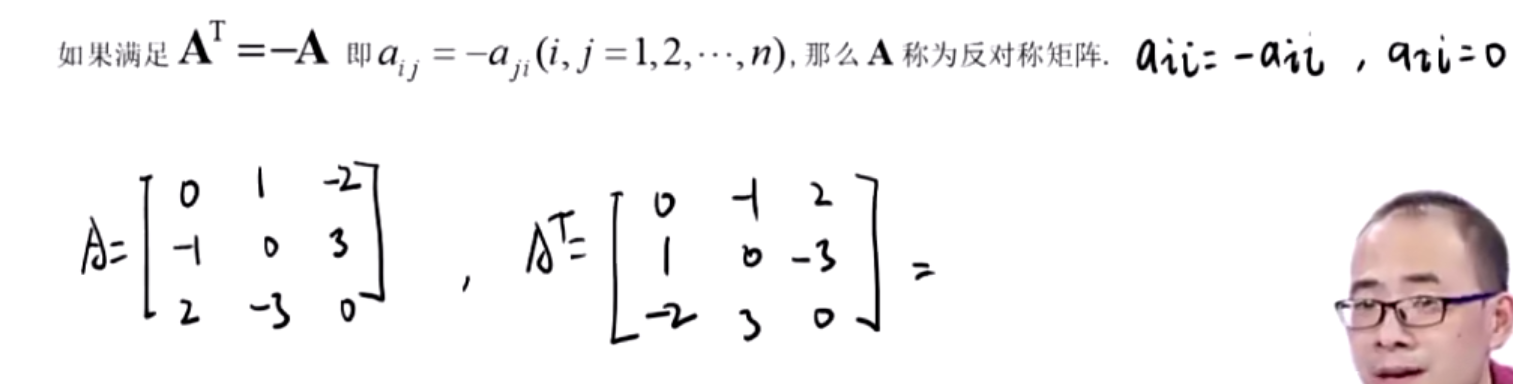 如果满足 Aᵀ =−A 即 aᵢⱼ = −aⱼᵢ (i, j = 1,2,⋯,n), 那么 A 称为反对称矩阵. aᵢᵢ= −aᵢᵢ , aᵢᵢ=0
A= [ 0 1 -2 , Aᵀ= [ 0 -1 2 ] =
-1 0 3 1 0 -3
2 -3 0 ] -2 3 0 ]